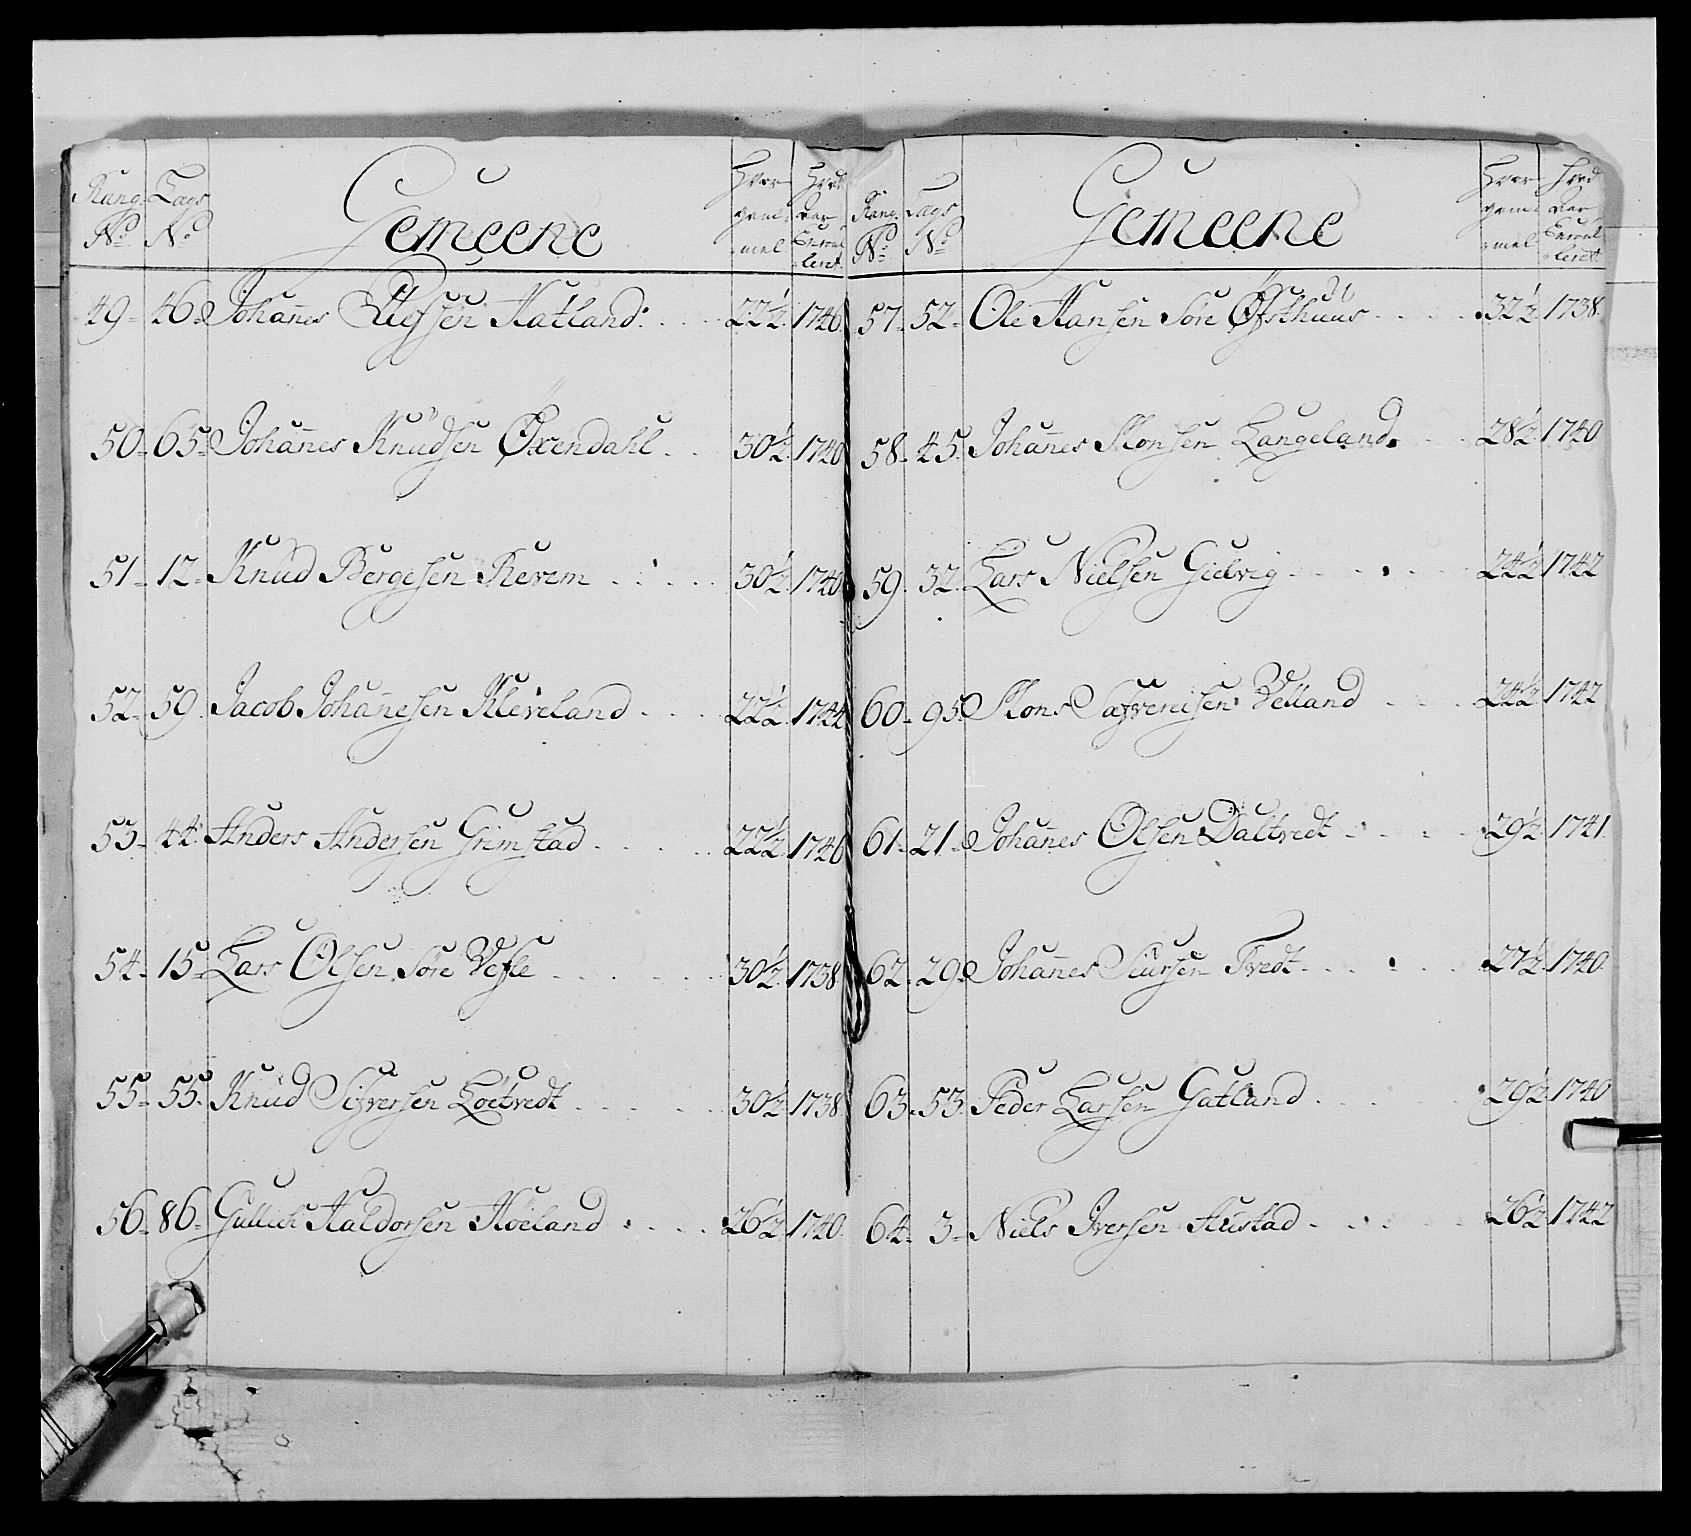 Rang No. Lags No. Gemeene Hvor gam- mel Hvad Aar Enroul- leret
49 - 46 - Johannes Hatland 22½ 1740
50 - 65 - Johannes Knudsen Øxendahl 30½ 1740
51 - 12 - Knud Bergesen Revem 30½ 1740
52 - 59. Jacob Johannesen Kleveland 22½ 1742
53 - 44. Anders Andersen Grimstad 22½ 1740
54 - 15 - Lars Olsen Søre Vefle 30½ 1738
55 - 55. Knud Sifversen Løetvedt 30½ 1738
56 - 86 - Gullich Haldorsen Høeland 26½ 1740
Rang No. Lags No. Gemeene Hvor gam- mel Hvad Aar Enroul- lerett
57 - 52 - Ole Hansen Søre Øfsthuus 32½ 1738
58 - 45. Johannes Monsen Langeland 28½ 1740
59. 32. Lars Nielsen Gielvig 24½ 1742
60 - 95. Mons Velland 24½ 1742
61 - 21 - Johannes Olsen Daltvedt 29½ 1741
62 - 29. Johannes Siursen Tvedt 27½ 1740
63 - 53. Peder Larsen Gatland 29½ 1740
64 - 3 - Niels Iversen Austad 26½ 1742